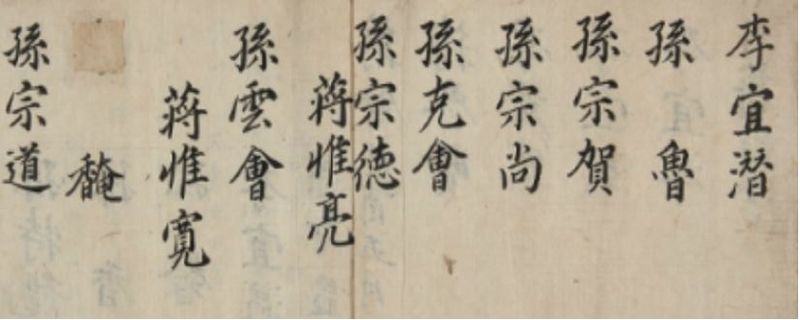 李宜潛
孫　魯
孫宗賀
孫宗尚
孫克會
孫宗德
蔣惟亮
孫雲會
蔣惟寬
馣
孫宗道